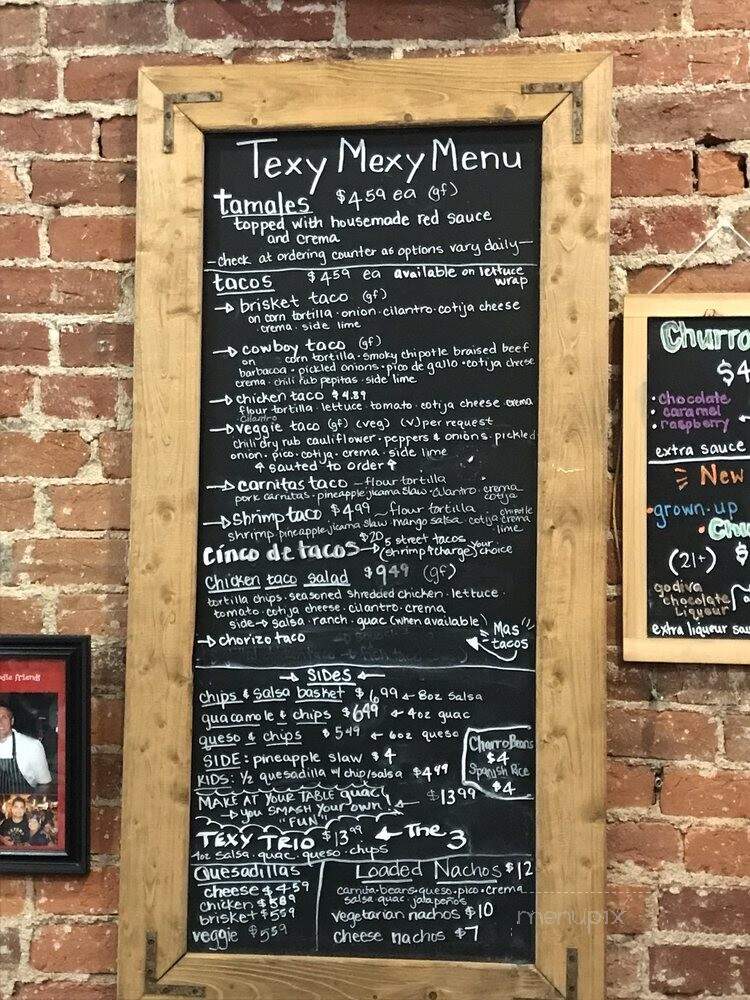 Texy Mexy Menu
tamales $4.59 ea (gf)
topped with housemade red sauce
and crema
-check at ordering counter as options vary daily-
tacos $4.59 ea available on lettuce
wrap
→ brisket taco (gf)
on corn tortilla · onion · cilantro · cotija cheese
· crema · side lime
→ cowboy taco (gf)
on corn tortilla · smoky chipotle braised beef
barbacoa · pickled onions · pico de gallo · cotija cheese
crema · chili rub pepitas · side lime
→ chicken taco $4.89
flour tortilla · lettuce · tomato · cotija cheese · crema
cilantro
→ veggie taco (gf) (veg) (v) per request
chili dry rub cauliflower · peppers & onions · pickled
onion · pico · cotija · crema · side lime
↑ sauted to order ↑
→ carnitas taco ~ flour tortilla
pork carnitas · pineapple jicama slaw · cilantro · crema
cotija
→ shrimp taco $4.99 ~ flour tortilla
shrimp · pineapple jicama slaw · mango salsa · cotija chipotle crema
lime
Cinco de tacos → $20 5 street tacos your
(shrimp ↑ charge) choice
Chicken taco salad $9.49 (gf)
tortilla chips · seasoned shredded chicken · lettuce ·
tomato · cotija cheese · cilantro · crema
side → salsa · ranch · guac (when available)
→ chorizo taco
Mas
tacos
→ SIDES ←
chips & salsa basket $6.99 ← 8oz salsa
guacamole & chips $6.49 ← 4oz guac
queso & chips $5.49 ← 6oz queso
SIDE: pineapple slaw $4
KIDS: 1/2 quesadilla w/ chip/salsa $4.99
Charro Beans
$4
Spanish Rice
$4
MAKE AT YOUR TABLE guac! ← $13.99
→ you SMASH your own!
"FUN"
TEXY TRIO $13.99 ← The 3
4oz salsa · guac · queso · chips
Quesadillas
cheese $4.59
chicken $5.89
brisket $5.59
veggie $5.59
Loaded Nachos $12
carnita · beans · queso · pico · crema
salsa · guac · jalapeños
vegetarian nachos $10
cheese nachos $7
menupix
Churro
$4
· chocolate
· caramel
· raspberry
extra sauce
New
· grown-up
· Chu
(21+) $
godiva
chocolate
Liqueur
extra liqueur sau
odie friends